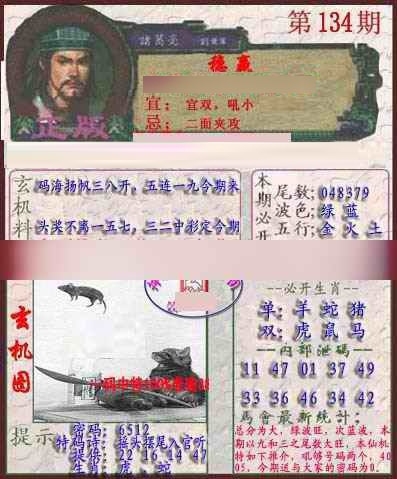 第134期
諸葛亮
劉伯溫
稳赢
正版
宜：宜双，吼小
忌：二面夹攻
玄机料
码海扬帆三八开，五连一九今期来
头奖不离一五七，三二寸彩定今期
本期必开
尾数：048379
波色：绿 蓝
五行：金 火 土
玄机图
必开生肖
单：羊 蛇 猪
双：虎 鼠 马
内部泄码
11 47 01 37 49
33 36 46 34 42
馬會最新統计：
总分为大，绿波旺，次蓝波，本
期以九和三之尾数大旺，本仙机
特如下推介，吼够号码两个，4
05，今期送与大家的密码为0。
提示
密码：6512
特码诗：摇头摆尾入官听
提供：22 16 14 47
生肖：虎、蛇